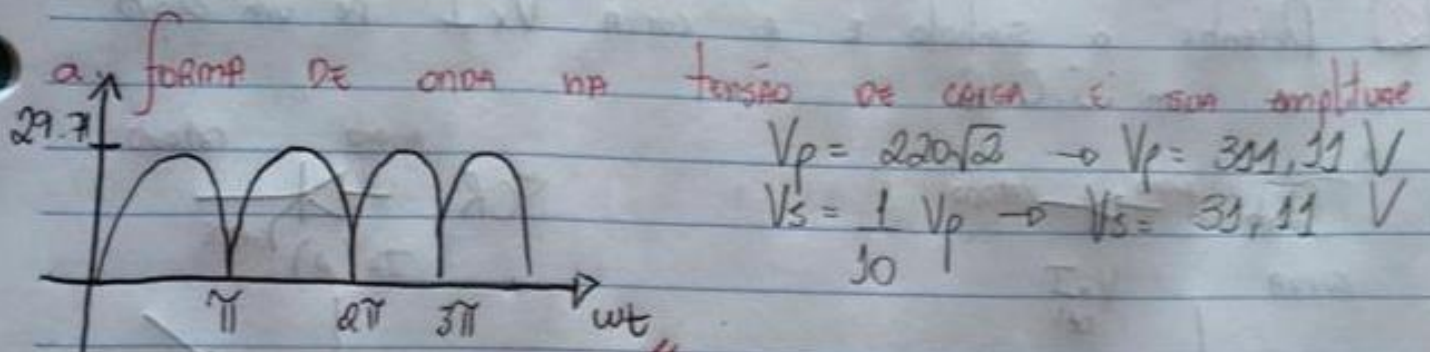 a. forma de onda na tensão de carga e sua amplitude
29.7
Vp = 220√2 → Vp = 311,11 V
Vs = 1/10 Vp → Vs = 31,11 V
π 2π 3π wt